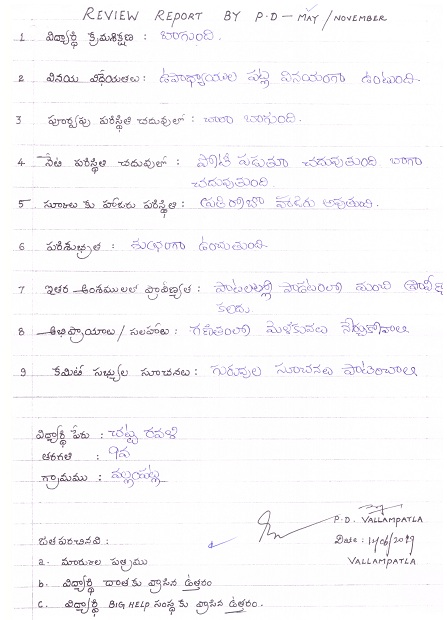 REVIEW REPORT BY P.D - MAY / NOVEMBER
1 విద్యార్థి క్రమశిక్షణ : బాగుంది.
2 వినయ విధేయతలు : ఉపాధ్యాయుల పట్ల వినయంగా ఉంటుంది.
3 పూర్వపు పరిస్థితి చదువులో : చాలా బాగుంది.
4 నేటి పరిస్థితి చదువులో : పోటీ పడుతూ చదువుతుంది బాగా
చదువుతుంది
5 స్కూలు కు హాజరు పరిస్థితి : ప్రతిరోజు హాజరు అవుతుంది.
6 పరిశుభ్రత : శుభ్రంగా ఉంటుంది.
7 ఇతర అంశములలో ప్రావీణ్యత : పాటలు పాడటంలో మంచి
కలదు
8 అభిప్రాయాలు / సలహాలు : గణితంలో మెళకువలు నేర్చుకోవాలి
9 కమిటీ సభ్యుల సూచనలు : గురువుల సూచనలు పాటించాలి
విద్యార్థి పేరు : చట్ట రవళి
తరగతి : 9వ
గ్రామము : వల్లంపట్ల
P.D. VALLAMPATLA
జతపరచినవి :
Date :
VALLAMPATLA
a. మార్కుల పత్రము
b. విద్యార్థి దాత కు వ్రాసిన ఉత్తరం
c. విద్యార్థి BIG HELP సంస్థ కు వ్రాసిన ఉత్తరం.